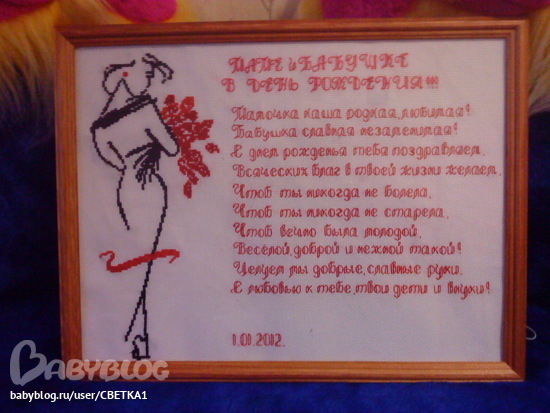 МАМЕ и БАБУШКЕ
В ДЕНЬ РОЖДЕНИЯ!!!
Мамочка наша родная, любимая!
Бабушка славная незаменимая!
С днем рожденья тебя поздравляем,
Всяческих благ в твоей жизни желаем,
Чтоб ты никогда не болела,
Чтоб ты никогда не старела,
Чтоб вечно была молодой,
Веселой, доброй и нежной такой!
Целуем мы добрые, славные руки.
С любовью к тебе, твои дети и внуки!
1.01.2012.
BABYBLOG
babyblog.ru/user/CBETKA1